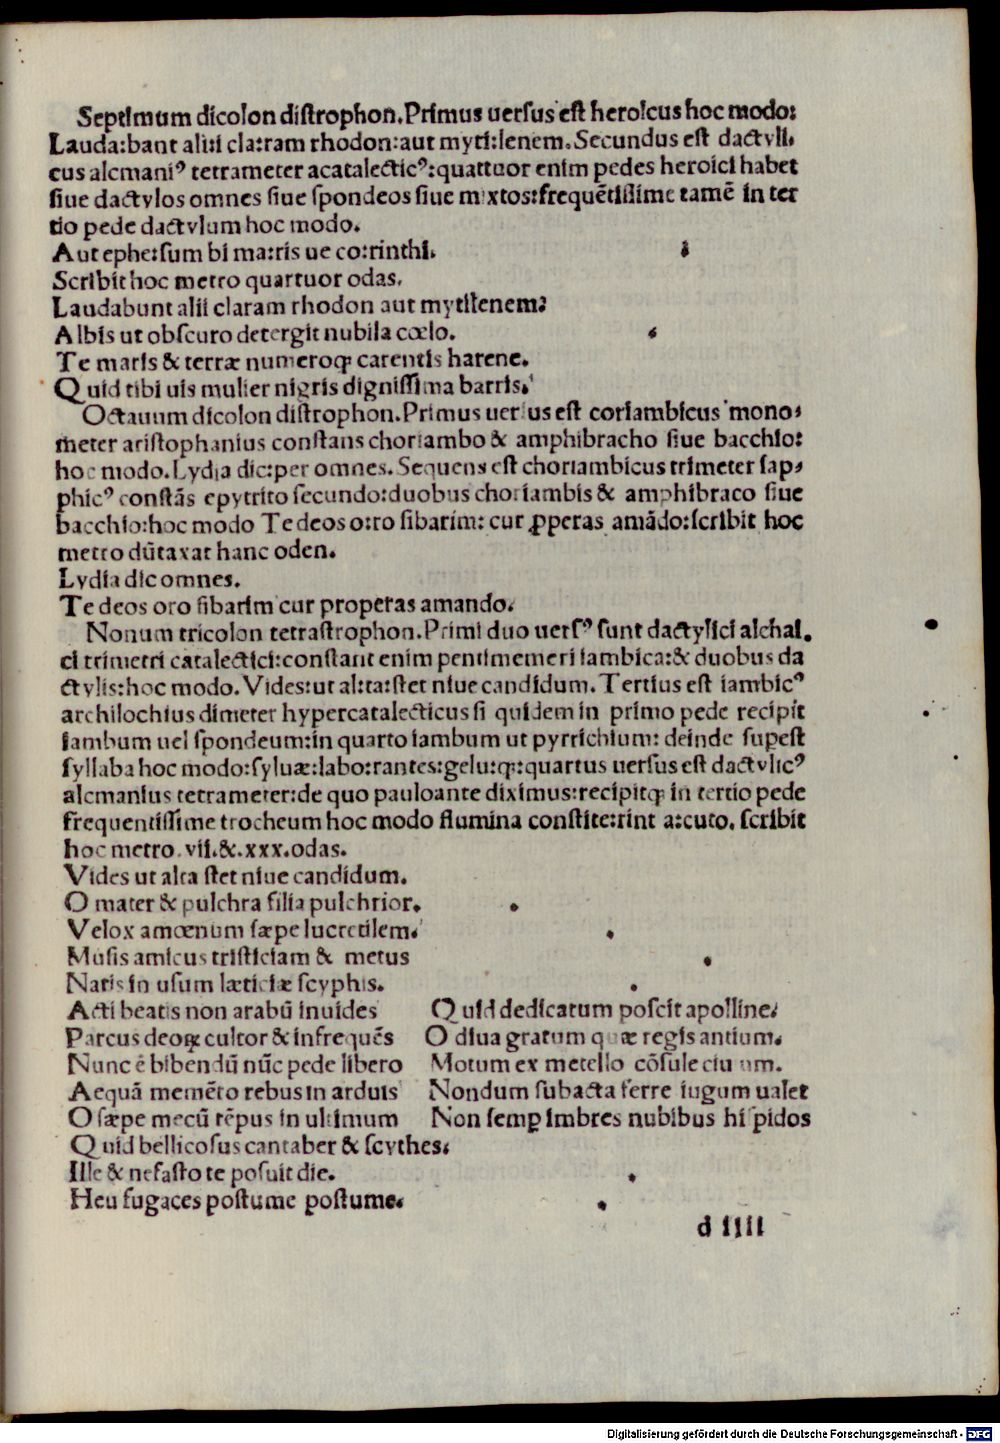 Septimum dicolon distrophon. Primus uersus est heroicus hoc modo:
Lauda:bant alii:i cla:ram rhodon:aut myti:lenem. Secundus est dactyli,
cus alcmaniꝰ tetrameter acatalecticꝰ:quattuor enim pedes heroici habet
siue dactylos omnes siue spondeos siue mixtos:frequētissime tamē in ter
tio pede dactylum hoc modo.
Aut ephe:sum bi ma:ris ue co:rinthi.
Scribit hoc metro quartuor odas.
Laudabunt alii claram rhodon aut mytilenem:
Albis ut obscuro detergit nubila cœlo.
Te maris & terræ numeroqꝫ carentis harene.
Quid tibi uis mulier nigris dignissima barris.
Octauum dicolon distrophon. Primus uersus est coriambicus mono,
meter aristophanius constans choriambo & amphibracho siue bacchio:
hoc modo. Lydia dic:per omnes. Sequens est choriambicus trimeter sap,
phicꝰ constās epytrito secundo:duobus choriambis & amphibraco siue
bacchio:hoc modo Te deos o:ro sibarim: cur ꝓperas amādo:scribit hoc
metro dūtaxat hanc oden.
Lydia dic omnes.
Te deos oro sibarim cur properas amando.
Nonum tricolon tetrastrophon. Primi duo uersꝰ sunt dactylici alchai.
ci trimetri catalectici:constant enim pentimemeri iambica:& duobus da
ctylis:hoc modo. Vides:ut al:ta:stet niue candidum. Tertius est iambicꝰ
archilochius dimeter hypercatalecticus si quidem in primo pede recipit
iambum uel spondeum:in quarto iambum ut pyrrichium: deinde supest
syllaba hoc modo:syluæ:labo:rantes:gelu:qꝫ:quartus uersus est dactylicꝰ
alcmanius tetrameter:de quo pauloante diximus:recipitqꝫ in tertio pede
frequentissime trocheum hoc modo flumina constite:rint a:cuto. scribit
hoc metro. vii.&.xxx.odas.
Vides ut alta stet niue candidum.
O mater & pulchra filia pulchrior.
Velox amœnum sæpe lucretilem.
Musis amicus tristiciam & metus
Natis in usum læticiæ scyphis.
Acti beatis non arabū inuides Quid dedicatum poscit apolline:
Parcus deoꝝ cultor & infrequēs O diua gratum quæ regis antium.
Nunc ē bibendū nūc pede libero Motum ex metello cōsule ciu um.
Aequā memēto rebus in arduis Nondum subacta ferre iugum ualet
O sæpe mecū tēpus in ultimum Non semꝑ imbres nubibus hispidos
Quid bellicosus cantaber & scythes:
Ille & nefasto te posuit die.
Heu fugaces postume postume.
d iiii
Digitalisierung gefördert durch die Deutsche Forschungsgemeinschaft - DFG